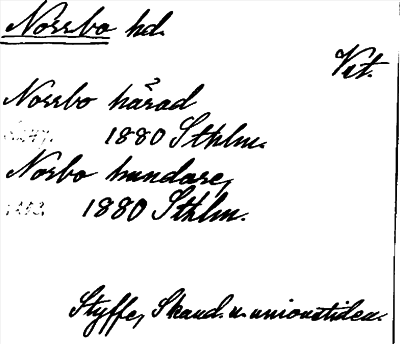 Norrbo hd.
Vst.
Norrbo härad
1880 Sthlm.
Norbo hundare,
1880 Sthlm.
Styffe, Skand. u. unionstiden.